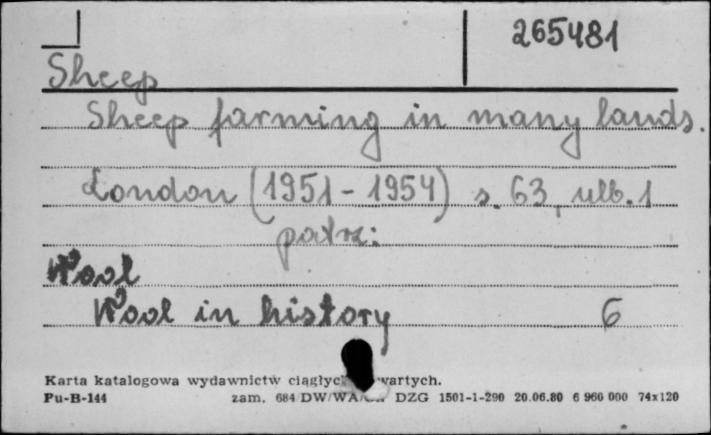 265481
Sheep
Sheep farming in many lands.
London (1951-1954) s. 63, ulb. 1
patrz:
Wool
Wool in history 6
Karta katalogowa wydawnictw
Pu-B-144 zam. 684 DW/WA DZG 1501-1-290 20.06.80 6 960 000 74x120